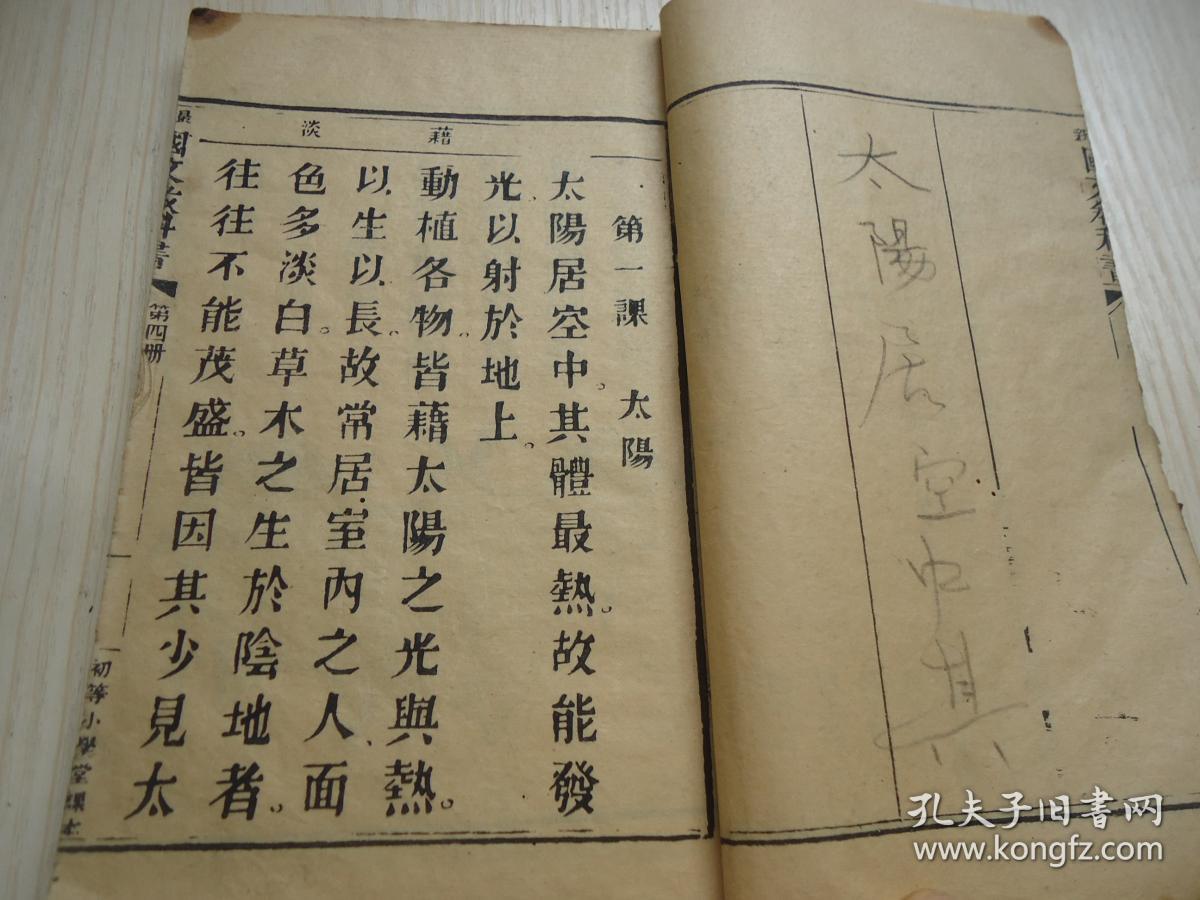 太陽居空中其
第一課 太陽
太陽居空中。其體最熱。故能發
光。以射於地上。
動植各物。皆藉太陽之光與熱。
以生以長。故常居室內之人、面
色多淡白。草木之生於陰地者。
往往不能茂盛。皆因其少見太
藉
淡
國文教科書
第四册
初等小學堂課本
孔夫子旧书网
www.kongfz.com